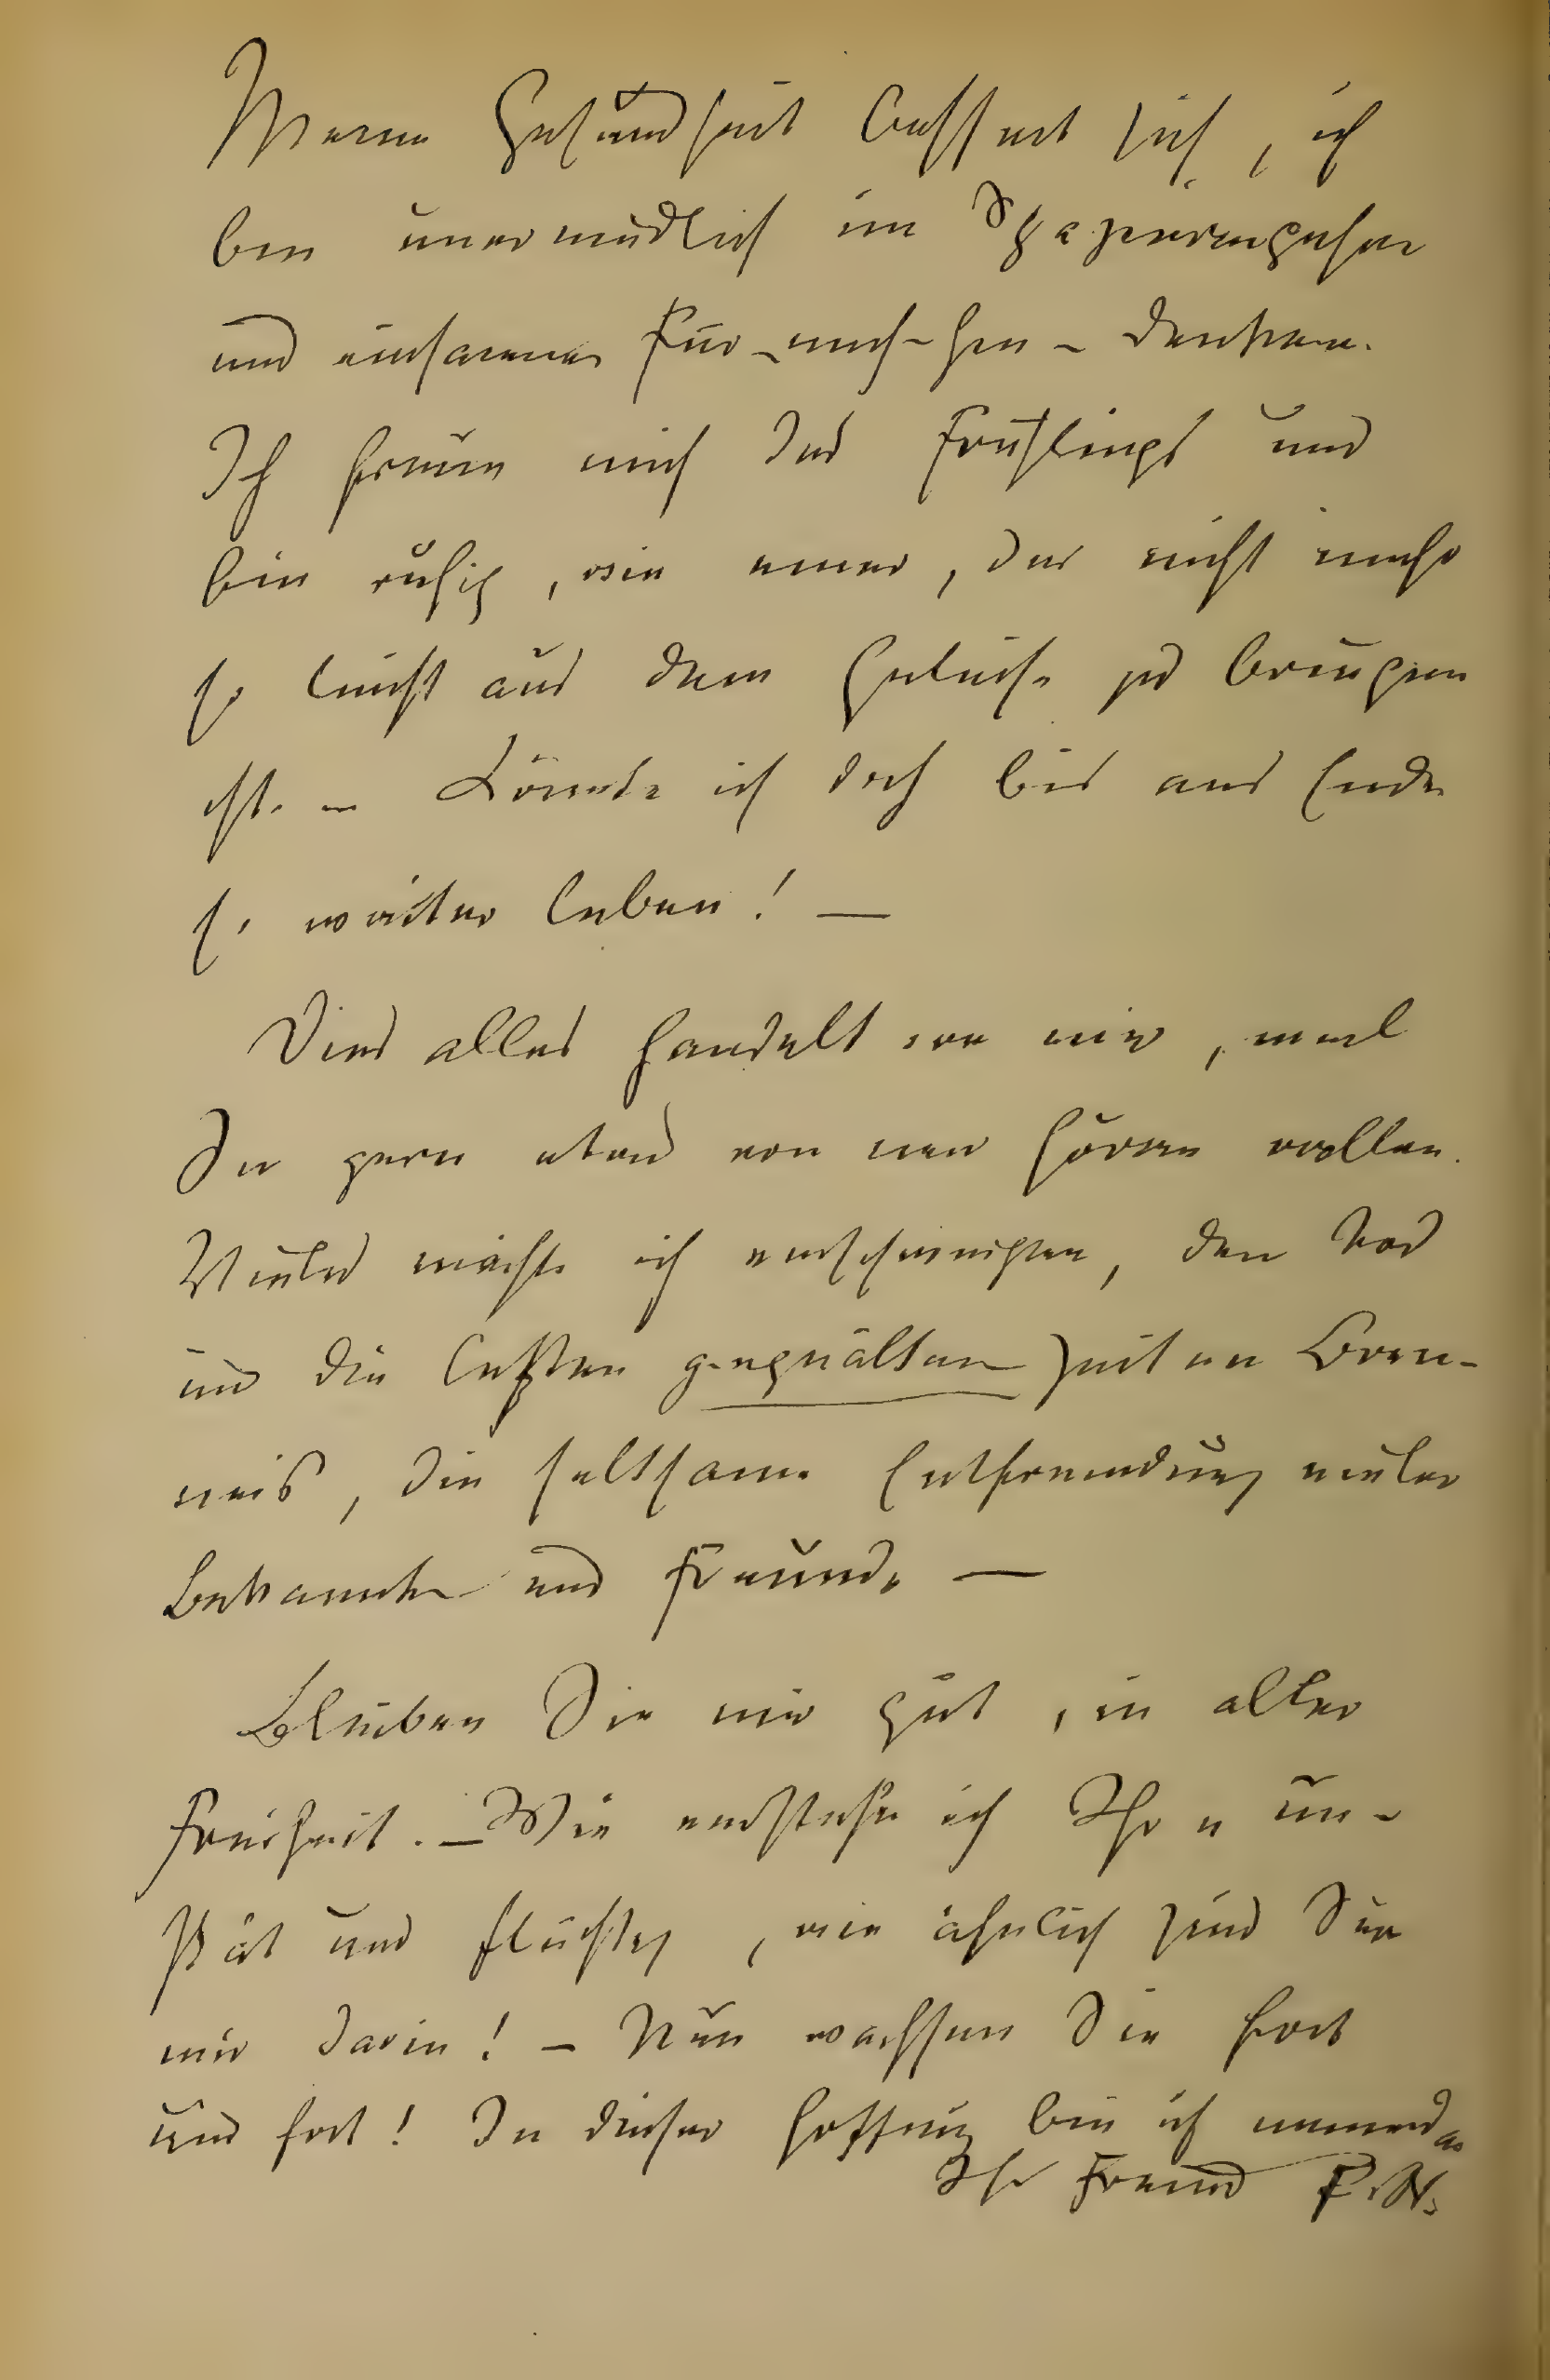 Meine Gesundheit bessert sich, ich
bin unermüdlich im Spazierengehen
und einsamen Für-mich-hin-denken.
Ich freue mich des Frühlings und
bin ruhig, wie einer, der nicht mehr
so leicht aus dem Geleise zu bringen
ist. – Könnte ich doch bis ans Ende
so weiter leben! —
Dies alles handelt von mir, weil
Sie gern etwas von mir hören wollen.
Vieles möchte ich verschweigen, den Tod
und die letzten gequälten Zeiten Bren-
ners, die seltsame Entfremdung vieler
Bekannte und Freunde —
Bleiben Sie mir gut, in aller
Freiheit. – Wie verstehe ich Ihr un-
stät und flüchtig, wie ähnlich sind Sie
mir darin! – Nun wachsen Sie fort
und fort! In dieser Hoffnung bin ich immerdar
Ihr Freund F. N.